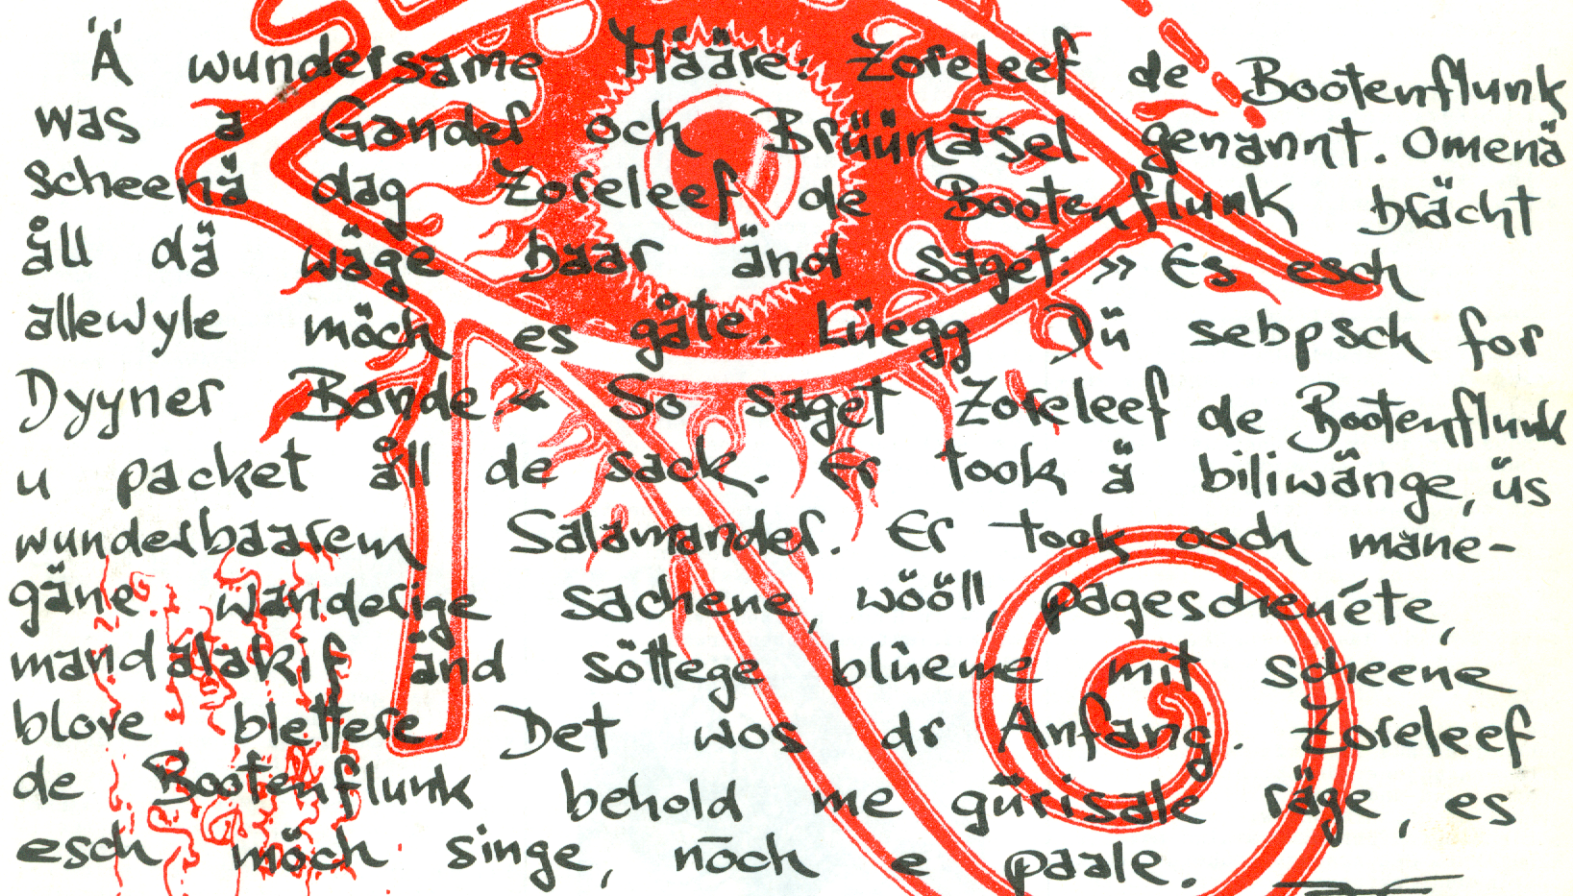 Ä wundersame Määre: Zoreleef de Bootenflunk
was a Gander och Brüünäsel genannt. Omenä
scheenä dag Zoreleef de Bootenflunk brächt
åll dä wäge baar änd saget: » Es esch
allewyle möch es gåte. Lüegg Dü sebpsck for
Dyyner Bande.« So saget Zoreleef de Bootenflunk
u packet åll de sack. Er took ä biliwänge, üs
wunderbaarem Salamander. Er took ooch mane-
gäne wanderige sachene, wööll, pageschenéte,
mandalakif änd söttege blüeme mit scheene
blove blettere. Det wos dr Anfang. Zoreleef
de Bootenflunk behold me gürisale räge, es
esch möch singe, nōch e paale.